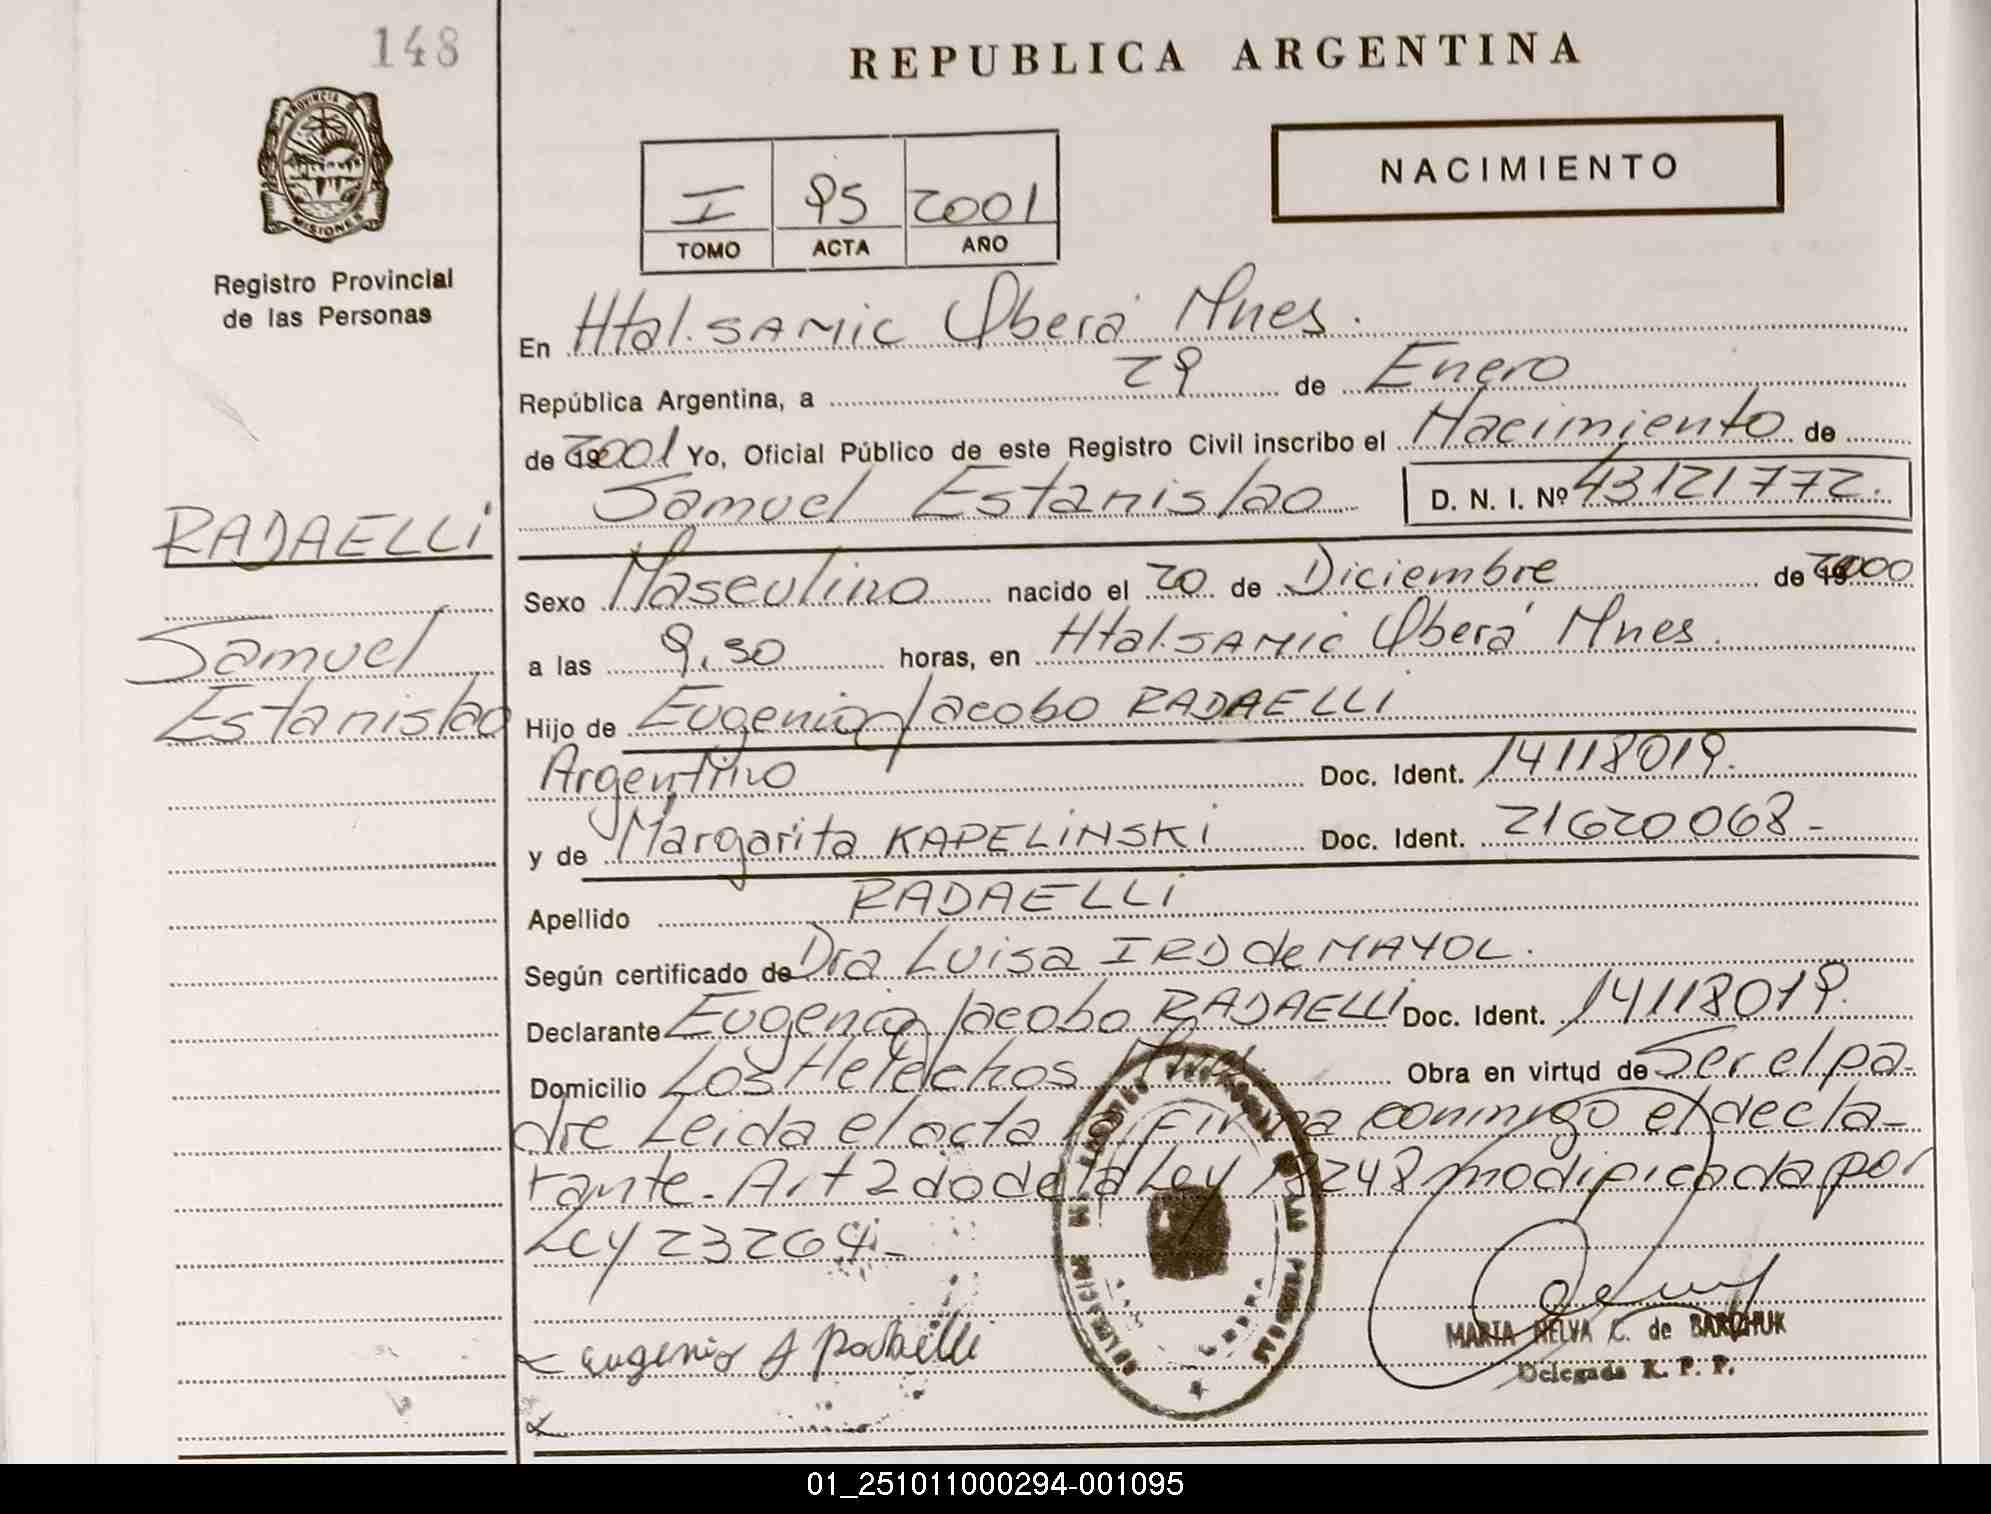 148
REPUBLICA ARGENTINA
PROVINCIA DE
MISIONES
NACIMIENTO
I 95 2001
TOMO ACTA AÑO
Registro Provincial
de las Personas
En Htal. SAMIC Oberá Mnes.
República Argentina, a 29 de Enero
de 2001 Yo, Oficial Público de este Registro Civil inscribo el Nacimiento de
Samuel Estanislao D. N. I. Nº 43121772.
RADAELLI
Samuel
Estanislao
Sexo Masculino nacido el 20 de Diciembre de 2000
a las 9,30 horas, en Htal. SAMIC Oberá Mnes.
Hijo de Eugenio Jacobo RADAELLI
Argentino Doc. Ident. 14118019.
y de Margarita KAPELINSKI Doc. Ident. 21620068-
Apellido RADAELLI
Según certificado de Dra Luisa IRD de MAYOL.
Declarante Eugenio Jacobo RADAELLI Doc. Ident. 14118019.
Domicilio Los Helechos Mnes. Obra en virtud de Ser el pa-
dre Leida el acta la firma conmigo el decla-
rante. Art 2do de la Ley 18248 modificada por
Ley 23264.-
Eugenio J Radaelli
MARIA NELVA C. de BARCHUK
Delegada R. P. P.
01_251011000294-001095